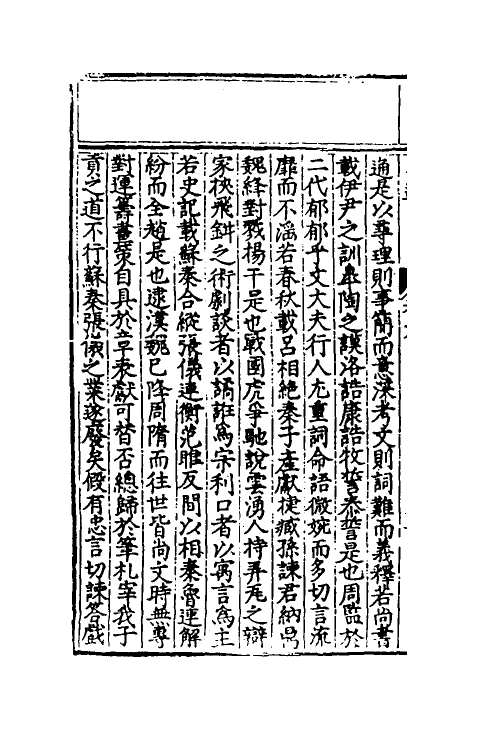 通是以尋理則事簡而意深考文則詞難而義釋若尚書
載伊尹之訓皐陶之謨洛誥康誥牧誓泰誓是也周監於
二代郁郁乎文大夫行人尤重詞命語微婉而多切言流
靡而不滛若春秋載呂相絶秦子產獻捷臧孫諫君納鼎
魏絳對戮楊干是也戰國虎爭馳說雲湧人持弄丸之辯
家挾飛鉗之術劇談者以譎誑爲宗利口者以寓言爲主
若史記載蘇秦合縱張儀連衡范睢反間以相秦魯連解
紛而全趙是也逮漢魏已降周隋而往世皆尚文時無專
對運籌畫策自具於章表獻可替否總歸於筆札宰我子
貢之道不行蘇秦張儀之業遂廢矣假有忠言切諫答戯